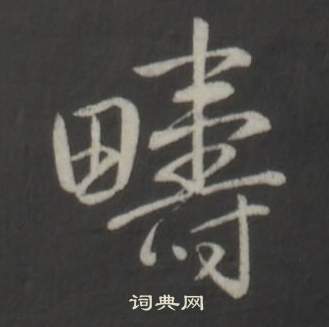 疇
词典网